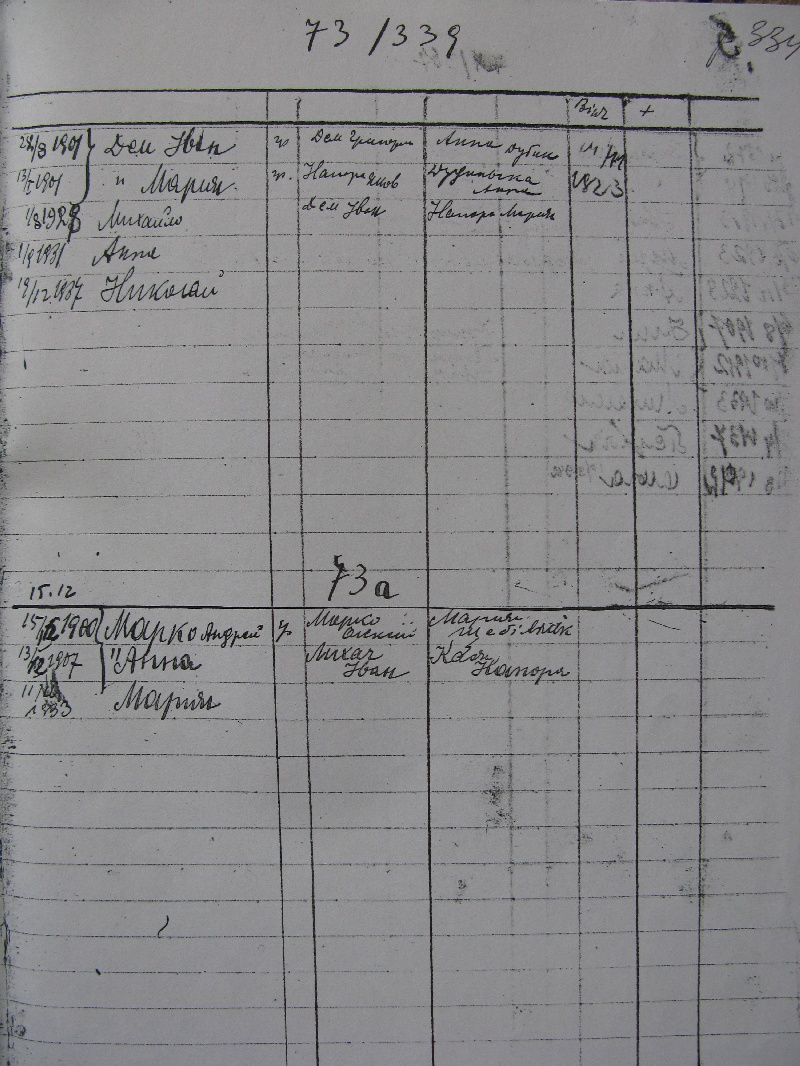 73/339
334
Вінч +
28/3 1901 Дем Іван гр Дем Григорій Анна Дубик
13/7 1901 " Мария гр. Напора Яков Дудинська Анна 1923
1/8 1928 Михайло Дем Іван Напора Мария
1/9 1931 Анна
19/12 1937 Николай
15.12
73а
15/12 1900 Марко Андрей гр Марко Алексій Мария
13/12 1907 " Анна Лихач Іван Катя Напора
1933 Мария